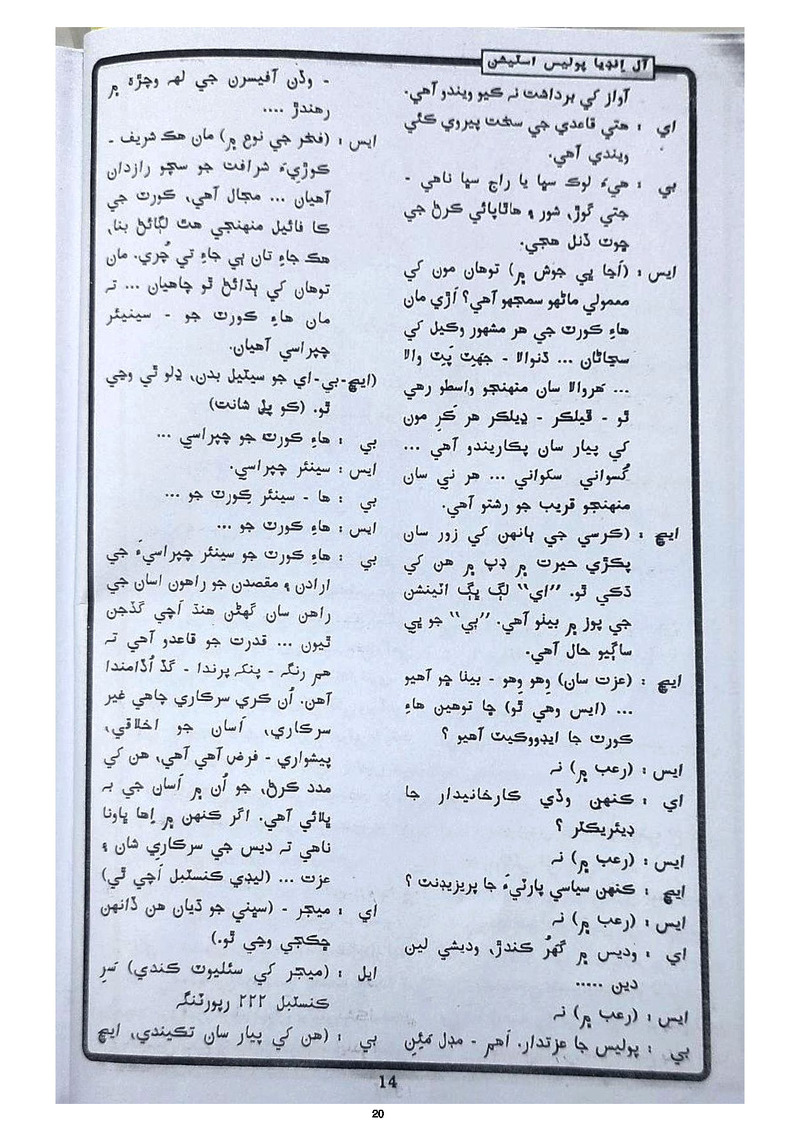 آل اِنڊيا پوليس اسٽيشن
آواز کي برداشت نہ ڪيو ويندو آهي.
اي : هتي قاعدي جي سخت پيروي ڪئي
ويندي آهي.
بي : هيءَ لوڪ سڀا يا راڄ سڀا ناهي -
جتي گوڙ، شور ۽ هاٿاپائي ڪرڻ جي
ڇوٽ ڏنل هجي.
ايس : (اَڃا ڀي جوش ۾) توهان مون کي
معمولي ماڻهو سمجهو آهي؟ اَڙي مان
هاءِ ڪورٽ جي هر مشهور وڪيل کي
سڃاڻان ... ڏنوالا - جهٽ پَٽ والا
... ڪروالا سان منهنجو واسطو رهي
ٿو - ڦيلڪر - ڍيلڪر هر ڪَرِ مون
کي پيار سان پڪاريندو آهي ...
ڪُسواني سڪواني ... هر نِي سان
منهنجو قريب جو رشتو آهي.
ايڇ : (ڪرسي جي ٻانهن کي زور سان
پڪڙي حيرت ۾ ڊپ ۾ هن کي
ڏڪي ٿو. ”اي“ لڳ ڀڳ اٽينشن
جي پوز ۾ بيٺو آهي. ”بي“ جو ڀي
ساڳيو حال آهي.
ايڇ : (عزت سان) وِهو وِهو - بيٺا ڇو آهيو
... (ايس وهي ٿو) ڇا توهين هاءِ
ڪورٽ جا ايڊووڪيٽ آهيو ؟
ايس : (رعب ۾) نہ
اي : ڪنهن وڏي ڪارخانيدار جا
ڊيئريڪٽر ؟
ايس : (رعب ۾) نہ
ايڇ : ڪنهن سياسي پارٽيءَ جا پريزيڊنٽ ؟
ايس : (رعب ۾) نہ
اي : وديس ۾ گهرُ ڪندڙ، وديشي لين
دين .....
ايس : (رعب ۾) نہ
بي : پوليس جا عزتدار. اَهم - مڊل مَئِنِ
- وڏن آفيسرن جي لهہ وچڙ ۾
رهندڙ ....
ايس : (فخر جي نوع ۾) مان هڪ شريف -
ڪوڙيءَ شرافت جو سچو رازدان
آهيان ... مجال آهي، ڪورٽ جي
ڪا فائيل منهنجي هٿ لڳائڻ بنا،
هڪ جاءِ تان ٻي جاءِ تي چُري. مان
توهان کي ٻڌائڻ ٿو چاهيان ... تہ
مان هاءِ ڪورٽ جو - سينيئر
چپراسي آهيان.
(ايڇ-بي-اي جو سيٽيل بدن، ڍلو ٿي وڃي
ٿو. (ڪو پل شانت)
بي : هاءِ ڪورٽ جو چپراسي ...
ايس : سينئر چپراسي.
بي : ها - سينئر ڪورٽ جو ...
ايس : هاءِ ڪورٽ جو ...
بي : هاءِ ڪورٽ جو سينئر چپراسيءَ جي
ارادن ۽ مقصدن جو راهون اسان جي
راهن سان گهڻن هنڌ اَچي گڏجن
ٿيون ... قدرت جو قاعدو آهي تہ
هم رنگہ - پنکہ پرندا - گڏ اُڏامندا
آهن. اُن ڪري سرڪاري چاهي غير
سرڪاري، اَسان جو اخلاقي،
پيشواري - فرض آهي آهي، هن کي
مدد ڪرڻ، جو اُن ۾ اَسان جي بہ
ڀلائي آهي. اگر ڪنهن ۾ اِها ڀاونا
ناهي تہ ديس جي سرڪاري شان ۽
عزت ... (ليڊي ڪنسٽبل اَچي ٿي)
اي : ميجر - (سڀني جو ڌيان هن ڏانهن
ڇڪجي وڃي ٿو.)
ايل : (ميجر کي سئليوٽ ڪندي) سَرِ
ڪنسٽبل ۲۲۲ رپورٽنگہ
بي : (هن کي پيار سان تڪيندي، ايڇ
14
20